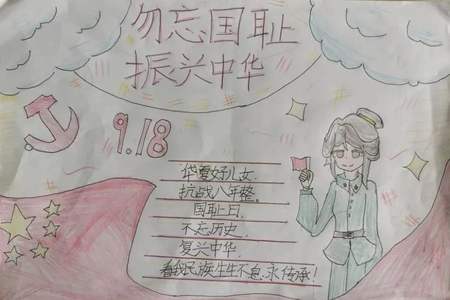 勿忘国耻
振兴中华
9.18
华夏好儿女
抗战八年整.
国耻日.
不忘历史.
复兴中华.
看我民族生生不息.永传承!